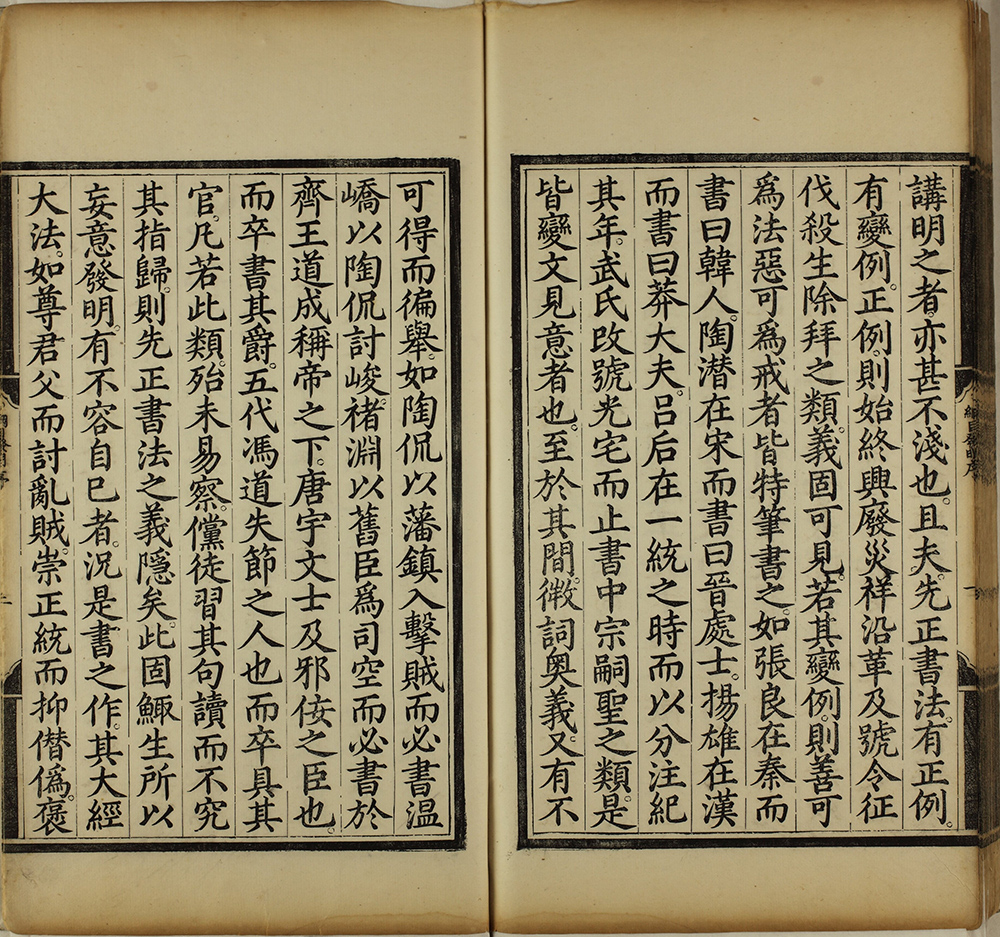 講明之者。亦甚不淺也。且夫。先正書法。有正例。
有變例。正例。則始終興廢災祥沿革及號令征
伐殺生除拜之類。義固可見。若其變例。則善可
爲法惡可爲戒者皆特筆書之。如張良在秦而
書曰韓人。陶潛在宋而書曰晉處士。揚雄在漢
而書曰莽大夫。呂后在一統之時而以分注紀
其年。武氏改號光宅而止書中宗嗣聖之類。是
皆變文見意者也。至於其間。微詞奥義。又有不
可得而徧舉。如陶侃以藩鎮入擊賊而必書温
嶠以陶侃討峻。褚淵以舊臣爲司空而必書於
齊王道成稱帝之下。唐宇文士及邪佞之臣也。
而卒書其爵。五代馮道失節之人也而卒具其
官。凡若此類。殆未易察。儻徒習其句讀而不究
其指歸。則先正書法之義隱矣。此固鯫生所以
妄意發明。有不容自已者。況是書之作。其大經
大法。如尊君父而討亂賊。崇正統而抑僭僞。褒